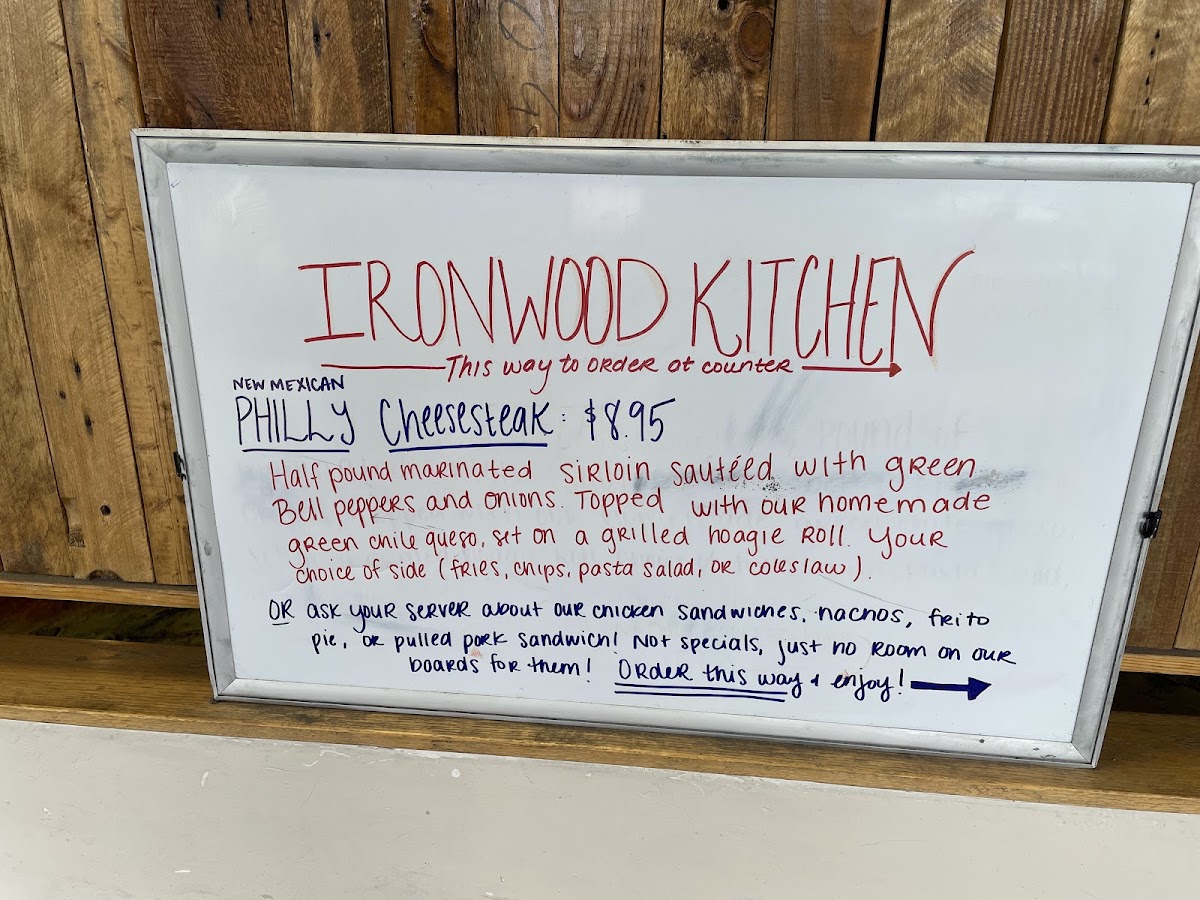 IRONWOOD KITCHEN
This way to order at counter
NEW MEXICAN
PHILLY Cheesesteak: $8.95
Half pound marinated sirloin sautéed with green
Bell peppers and onions. Topped with our homemade
green chile queso, set on a grilled hoagie roll. Your
choice of side (fries, chips, pasta salad, or coleslaw).
OR ask your server about our chicken sandwiches, nachos, frito
pie, or pulled pork sandwich! Not specials, just no room on our
boards for them! Order this way & enjoy!